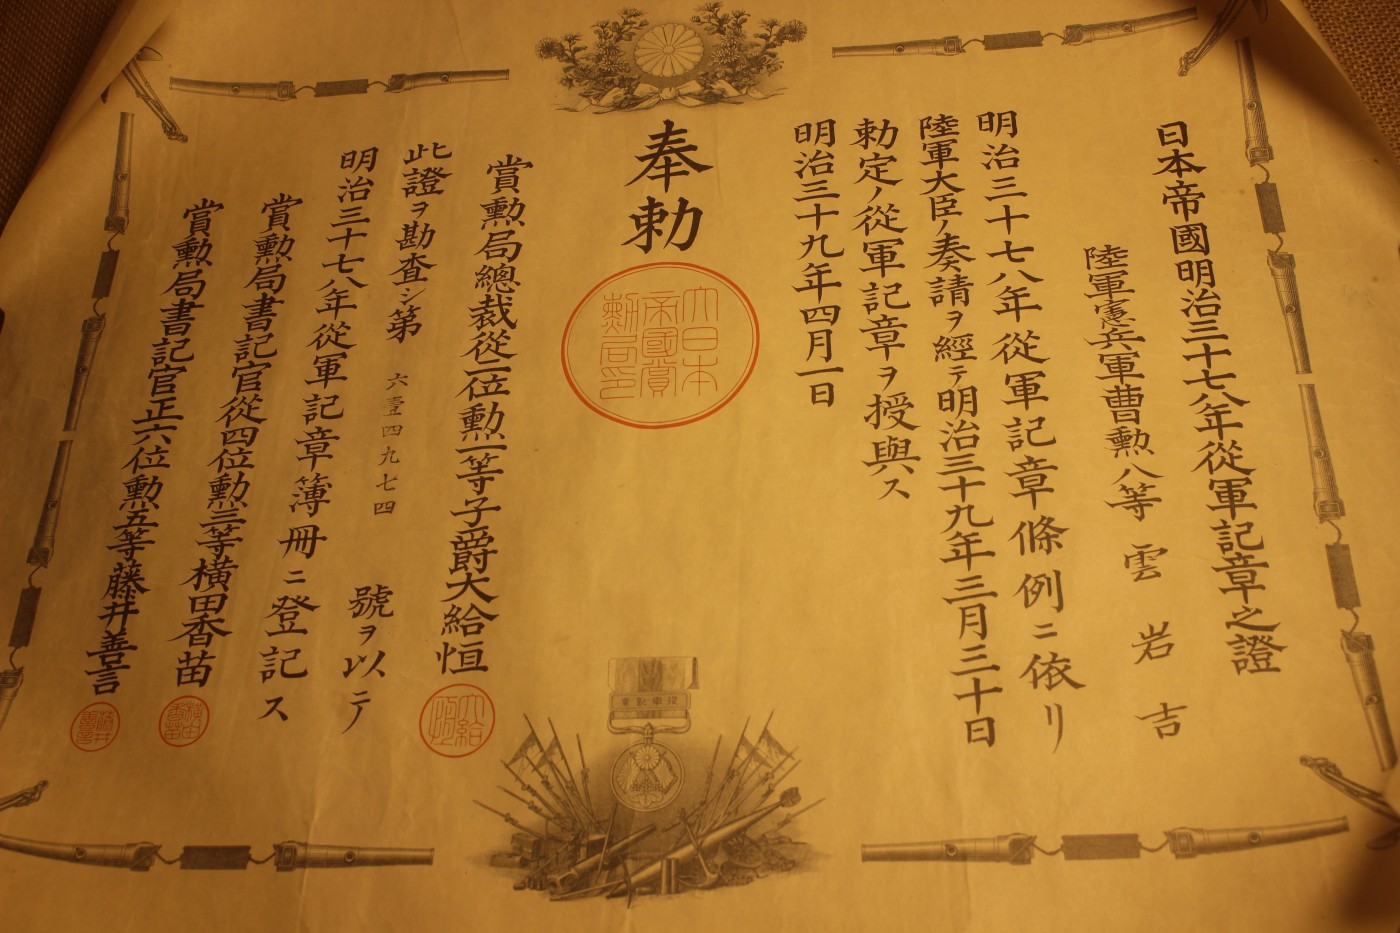 日本帝國明治三十七八年從軍記章之證
陸軍憲兵軍曹勲八等 雲岩吉
明治三十七八年從軍記章條例ニ依リ
陸軍大臣ノ奏請ヲ經テ明治三十九年三月三十日
勅定ノ從軍記章ヲ授與ス
明治三十九年四月一日
奉勅
大日本
帝國賞
勲局印
賞勲局總裁從一位勲一等子爵大給恒
大給
恒
此證ヲ勘査シ第六壹四九七四號ヲ以テ
明治三十七八年從軍記章簿冊ニ登記ス
賞勲局書記官從四位勲三等横田香苗
横田
香苗
賞勲局書記官正六位勲五等藤井善言
藤井
善言
章記軍從